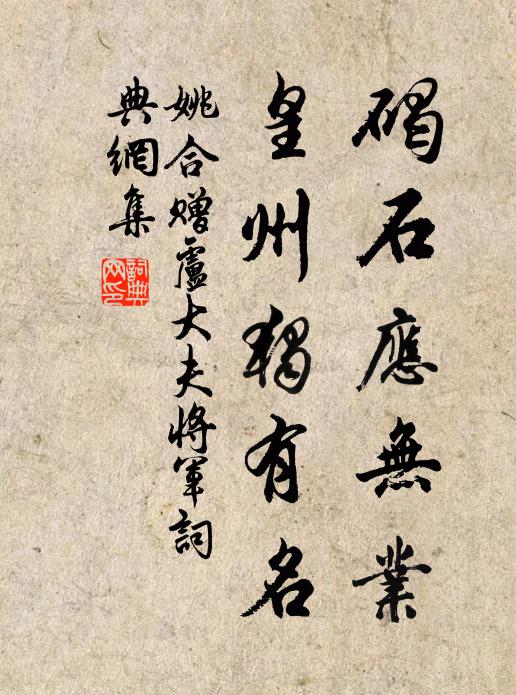 碣石應無業
皇州獨有名
姚合贈盧大夫將軍詞
典網集
詞典
网印